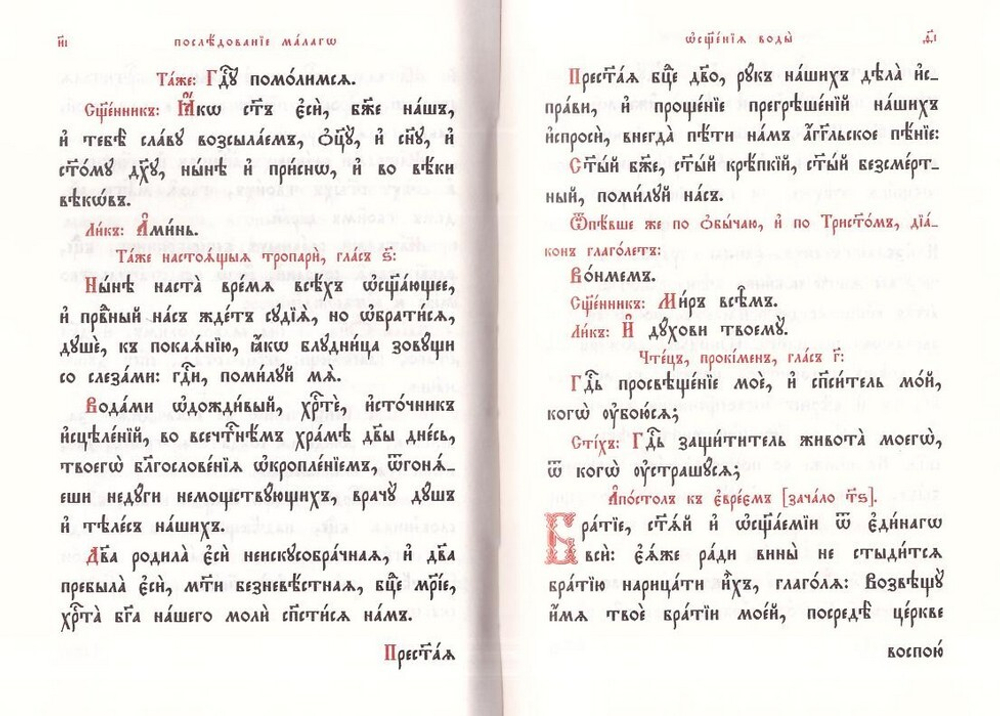 н҃і
послѣ́дованїе ма́лагѡ
Та́же: Гдⷭ҇ꙋ помо́лимсѧ.
Сщ҃е́нникъ: Ꙗ҆́кѡ ст҃ъ є҆сѝ, бж҃е на́шъ,
и҆ тебѣ̀ сла́вꙋ возсыла́емъ, ѻ҆ц҃ꙋ̀, и҆ сн҃ꙋ, и҆
ст҃о́мꙋ дх҃ꙋ, ны́нѣ и҆ при́снѡ, и҆ во вѣ́ки
вѣкѡ́въ.
Ли́къ: А҆ми́нь.
Та́же настоѧ́щыѧ тропарѝ, гла́съ ѕ҃:
Ны́нѣ наста̀ вре́мѧ всѣ́хъ ѡ҆сщ҃а́ющее,
и҆ пра́вⷣный на́съ жде́тъ сꙋдїѧ̀, но ѡ҆брати́сѧ,
дꙋшѐ, къ покаѧ́нїю, ꙗ҆́кѡ блꙋдни́ца зовꙋ́щи
со слеза́ми: гдⷭ҇и, поми́лꙋй мѧ̀.
Вода́ми ѡ҆дожди́вый, хрⷭ҇тѐ, и҆сто́чникъ
и҆сцѣле́нїй, во всечⷭ҇тнѣ́мъ хра́мѣ дв҃ы дне́сь,
твоегѡ̀ блгⷭ҇ове́нїѧ ѡ҆кропле́нїемъ, ѿгонѧ́_
еши недꙋ́ги немощствꙋ́ющихъ, врачꙋ̀ дꙋ́шъ
и҆ тѣле́съ на́шихъ.
Дв҃а родила̀ є҆сѝ неискꙋсобра́чнаѧ, и҆ дв҃а
пребыла̀ є҆сѝ, мт҃и безневѣ́стнаѧ, бцⷣе мр҃і́е,
хрⷭ҇та̀ бг҃а на́шего молѝ спⷭ҇ти́сѧ на́мъ.
Прест҃а́ѧ
ѡ҆сщ҃е́нїѧ воды̀
д҃і
Прест҃а́ѧ бцⷣе дв҃о, рꙋ́къ на́шихъ дѣла̀ и҆с_
пра́ви, и҆ проще́нїе прегрѣше́нїй на́шихъ
и҆спросѝ, внегда̀ пѣ́ти на́мъ а҆́гг҃льское пѣ́нїе:
Ст҃ы́й бж҃е, ст҃ы́й крѣ́пкїй, ст҃ы́й безсме́рт_
ный, поми́лꙋй на́съ.
Ѿпѣ́вше же по ѻ҆бы́чаю, и҆ по Трист҃о́мъ, дїа́_
конъ глаго́летъ:
Во́нмемъ.
Сщ҃е́нникъ: Ми́ръ всѣ̑мъ.
Ли́къ: И҆ дꙋ́хови твоемꙋ̀.
Чте́цъ, проки́менъ, гла́съ г҃:
Гдⷭ҇ь просвѣще́нїе моѐ, и҆ сп҃си́тель мо́й,
когѡ̀ ᲂу҆бою́сѧ;
Сті́хъ: Гдⷭ҇ь защи́титель живота̀ моегѡ̀,
ѿ когѡ̀ ᲂу҆страшꙋ́сѧ;
А҆по́столъ къ є҆вре́ємъ [зача́ло т҃ѕ].
Бра́тїе, ст҃ѧ́й и҆ ѡ҆сщ҃а́емїи ѿ є҆ди́нагѡ
всѝ: є҆ѧ́же ра́ди вины̀ не стыди́тсѧ
бра́тїю нарица́ти и҆̀хъ, глаго́лѧ: Возвѣщꙋ̀
и҆́мѧ твоѐ бра́тїи мое́й, посредѣ̀ це́ркве
воспою̀